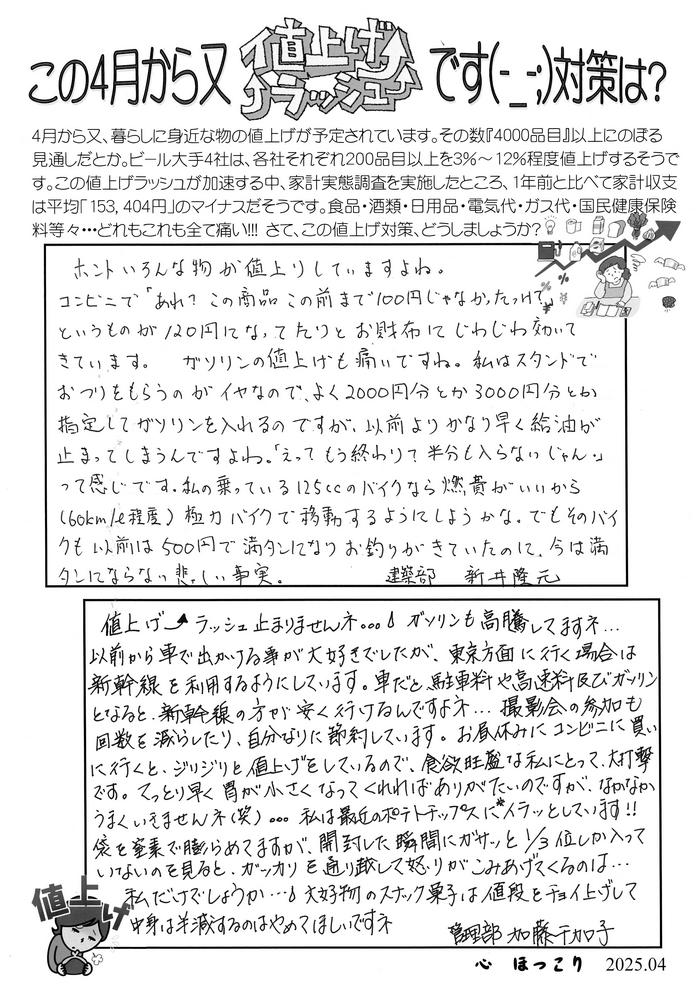 この4月から又 値上げラッシュ です(-_-;)対策は?
4月から又、暮らしに身近な物の値上げが予定されています。その数『4000品目』以上にのぼる
見通しだとか。ビール大手4社は、各社それぞれ200品目以上を3%～12%程度値上げするそうで
す。この値上げラッシュが加速する中、家計実態調査を実施したところ、1年前と比べて家計収支
は平均「153,404円」のマイナスだそうです。食品・酒類・日用品・電気代・ガス代・国民健康保険
料等々…どれもこれも全て痛い!!! さて、この値上げ対策、どうしましょうか?
ホントいろんな物が値上りしていますよね。
コンビニで「あれ? この商品この前まで100円じゃなかったっけ?」
というものが120円になってたりとお財布にじわじわ効いて
きています。 ガソリンの値上げも痛いですね。私はスタンドで
おつりをもらうのがイヤなので、よく2000円分とか3000円分とか
指定してガソリンを入れるのですが、以前よりかなり早く給油が
止まってしまうんですよね。「えってもう終わり?半分も入らないじゃん。」
って感じです。私の乗っている125ccのバイクなら燃費がいいから
(60km/ℓ程度)極力バイクで移動するようにしようかな。でもそのバイ
クも以前は500円で満タンになりお釣りがきていたのに、今は満
タンにならない悲しい事実。 建築部 新井隆元
値上げ ラッシュ止まりませんネ…。ガソリンも高騰してますネ…
以前から車で出かける事が大好きでしたが、東京方面に行く場合は
新幹線を利用するようにしています。車だと、駐車料や高速料及びガソリン
となると、新幹線の方が安く行けるんですよネ… 撮影会の参加も
回数を減らしたり、自分なりに節約しています。お昼休みにコンビニに買い
に行くと、ジリジリと値上げをしているので、食欲旺盛な私にとって、大打撃
です。てっとり早く胃が小さくなってくれればありがたいのですが、なかなか
うまくいきませんネ(笑)… 私は最近のポテトチップスにイラッとしています!!
袋を窒素で膨らめてますが、開封した瞬間にガサッと1/3位しか入って
いないのを見ると、ガッカリを通り越して怒りがこみあげてくるのは…
私だけでしょうか…。大好物のスナック菓子は値段をチョイ上げして
中身は半減するのはやめてほしいですネ 管理部 加藤千加子
値上げ
心 ほっこり 2025.04